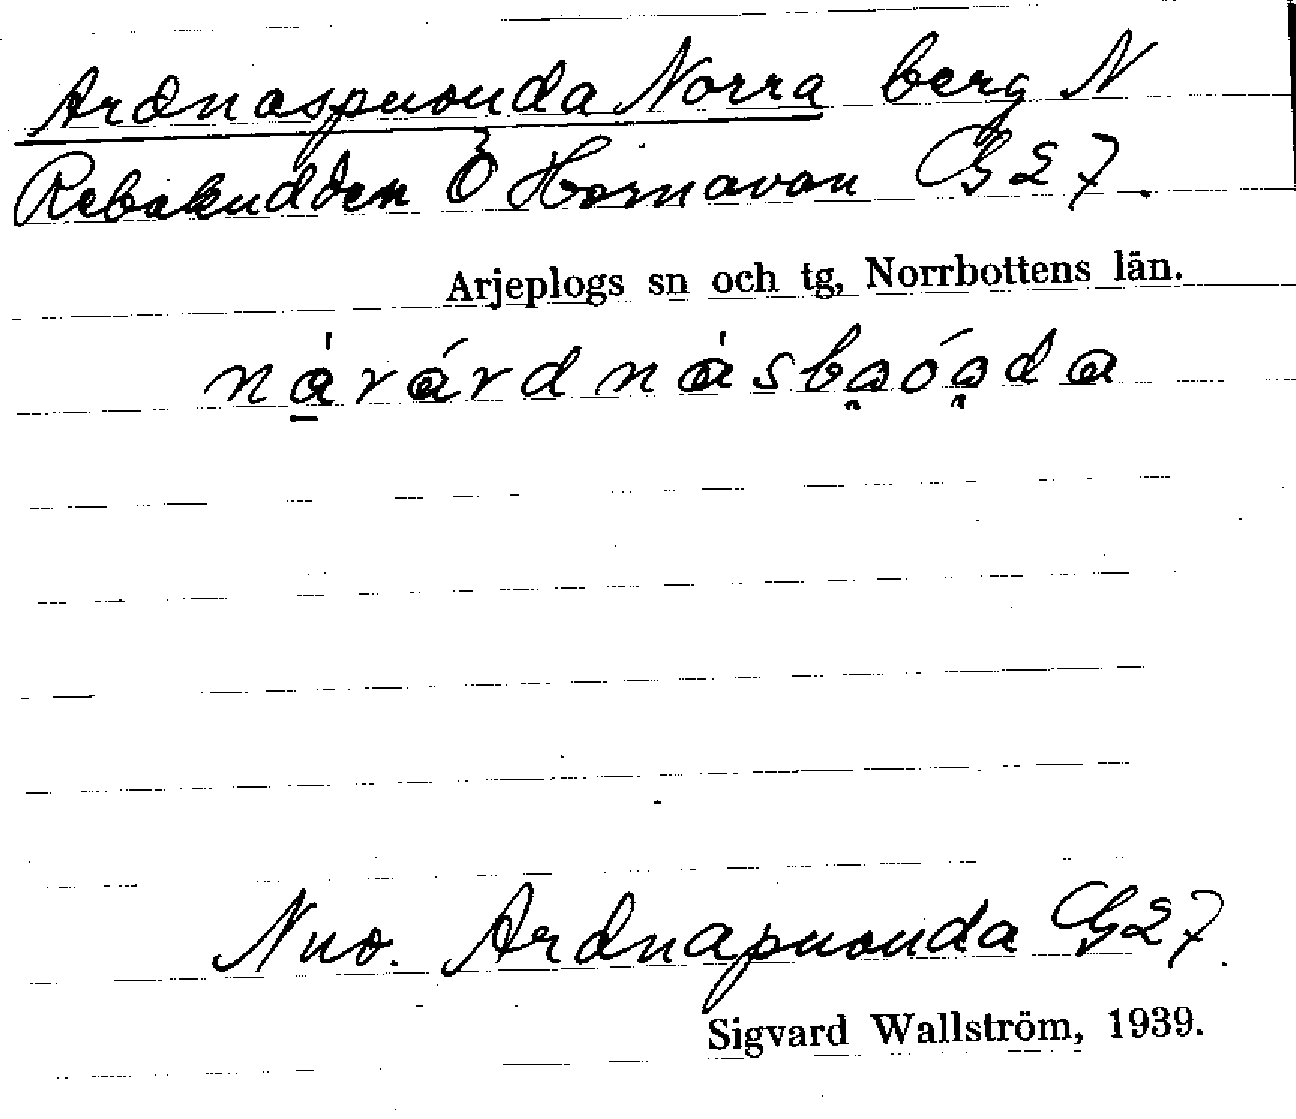 Ardnaspuouda Norra berg N
Rebakudden Ö Hornavan G27.
Arjeplogs sn och tg, Norrbottens län.
Nuo. Ardnapuouda G27.
Sigvard Wallström, 1939.